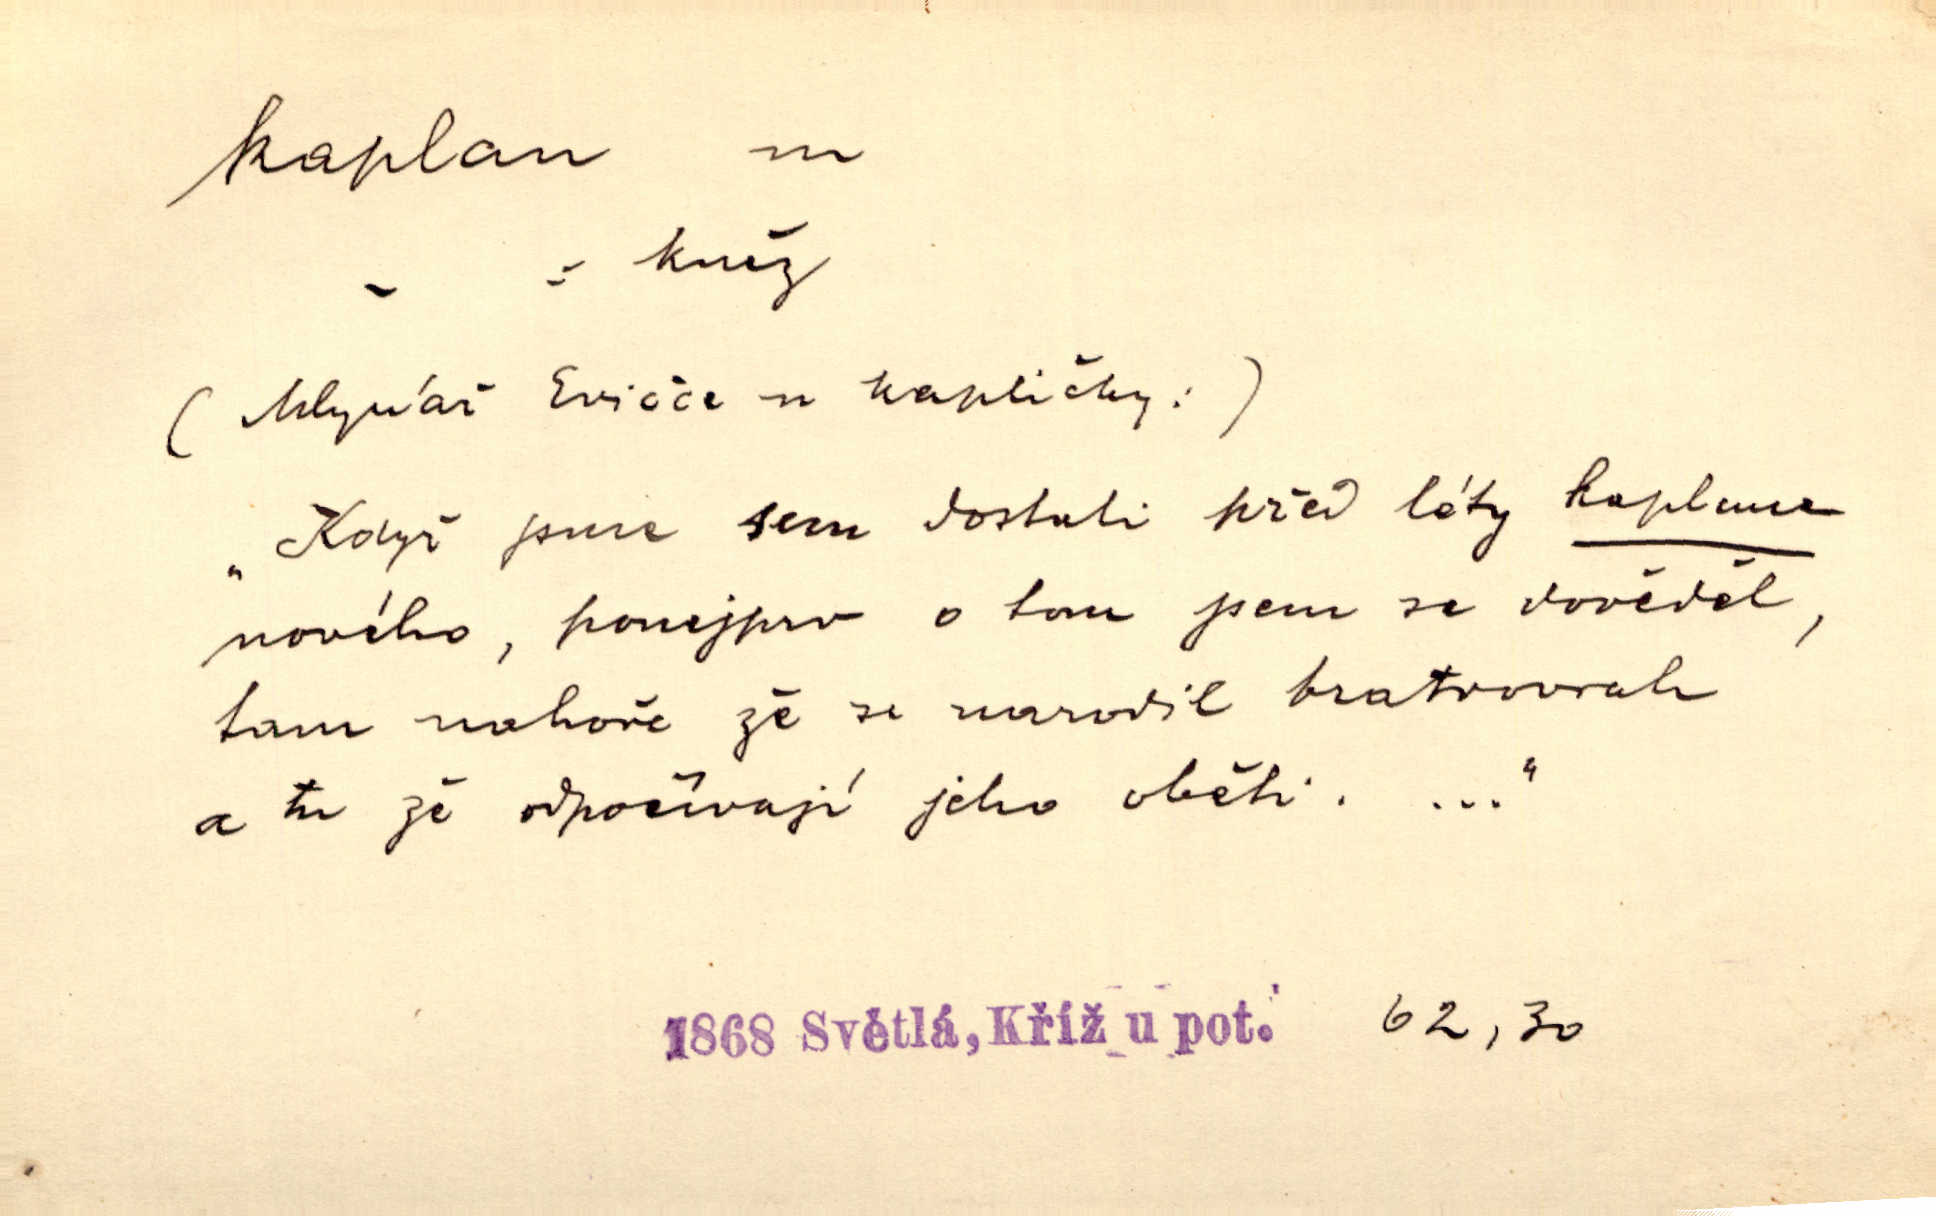 kaplan m
- : kněz
(Mlynář Evičce u kapličky:)
„Když jsme sem dostali před léty kaplana
nového, ponejprv o tom jsem se dověděl,
tam nahoře že se narodil bratrovrah
a tu že odpočívají jeho oběti. ..."
1868 Světlá, Kříž u pot. 62,30